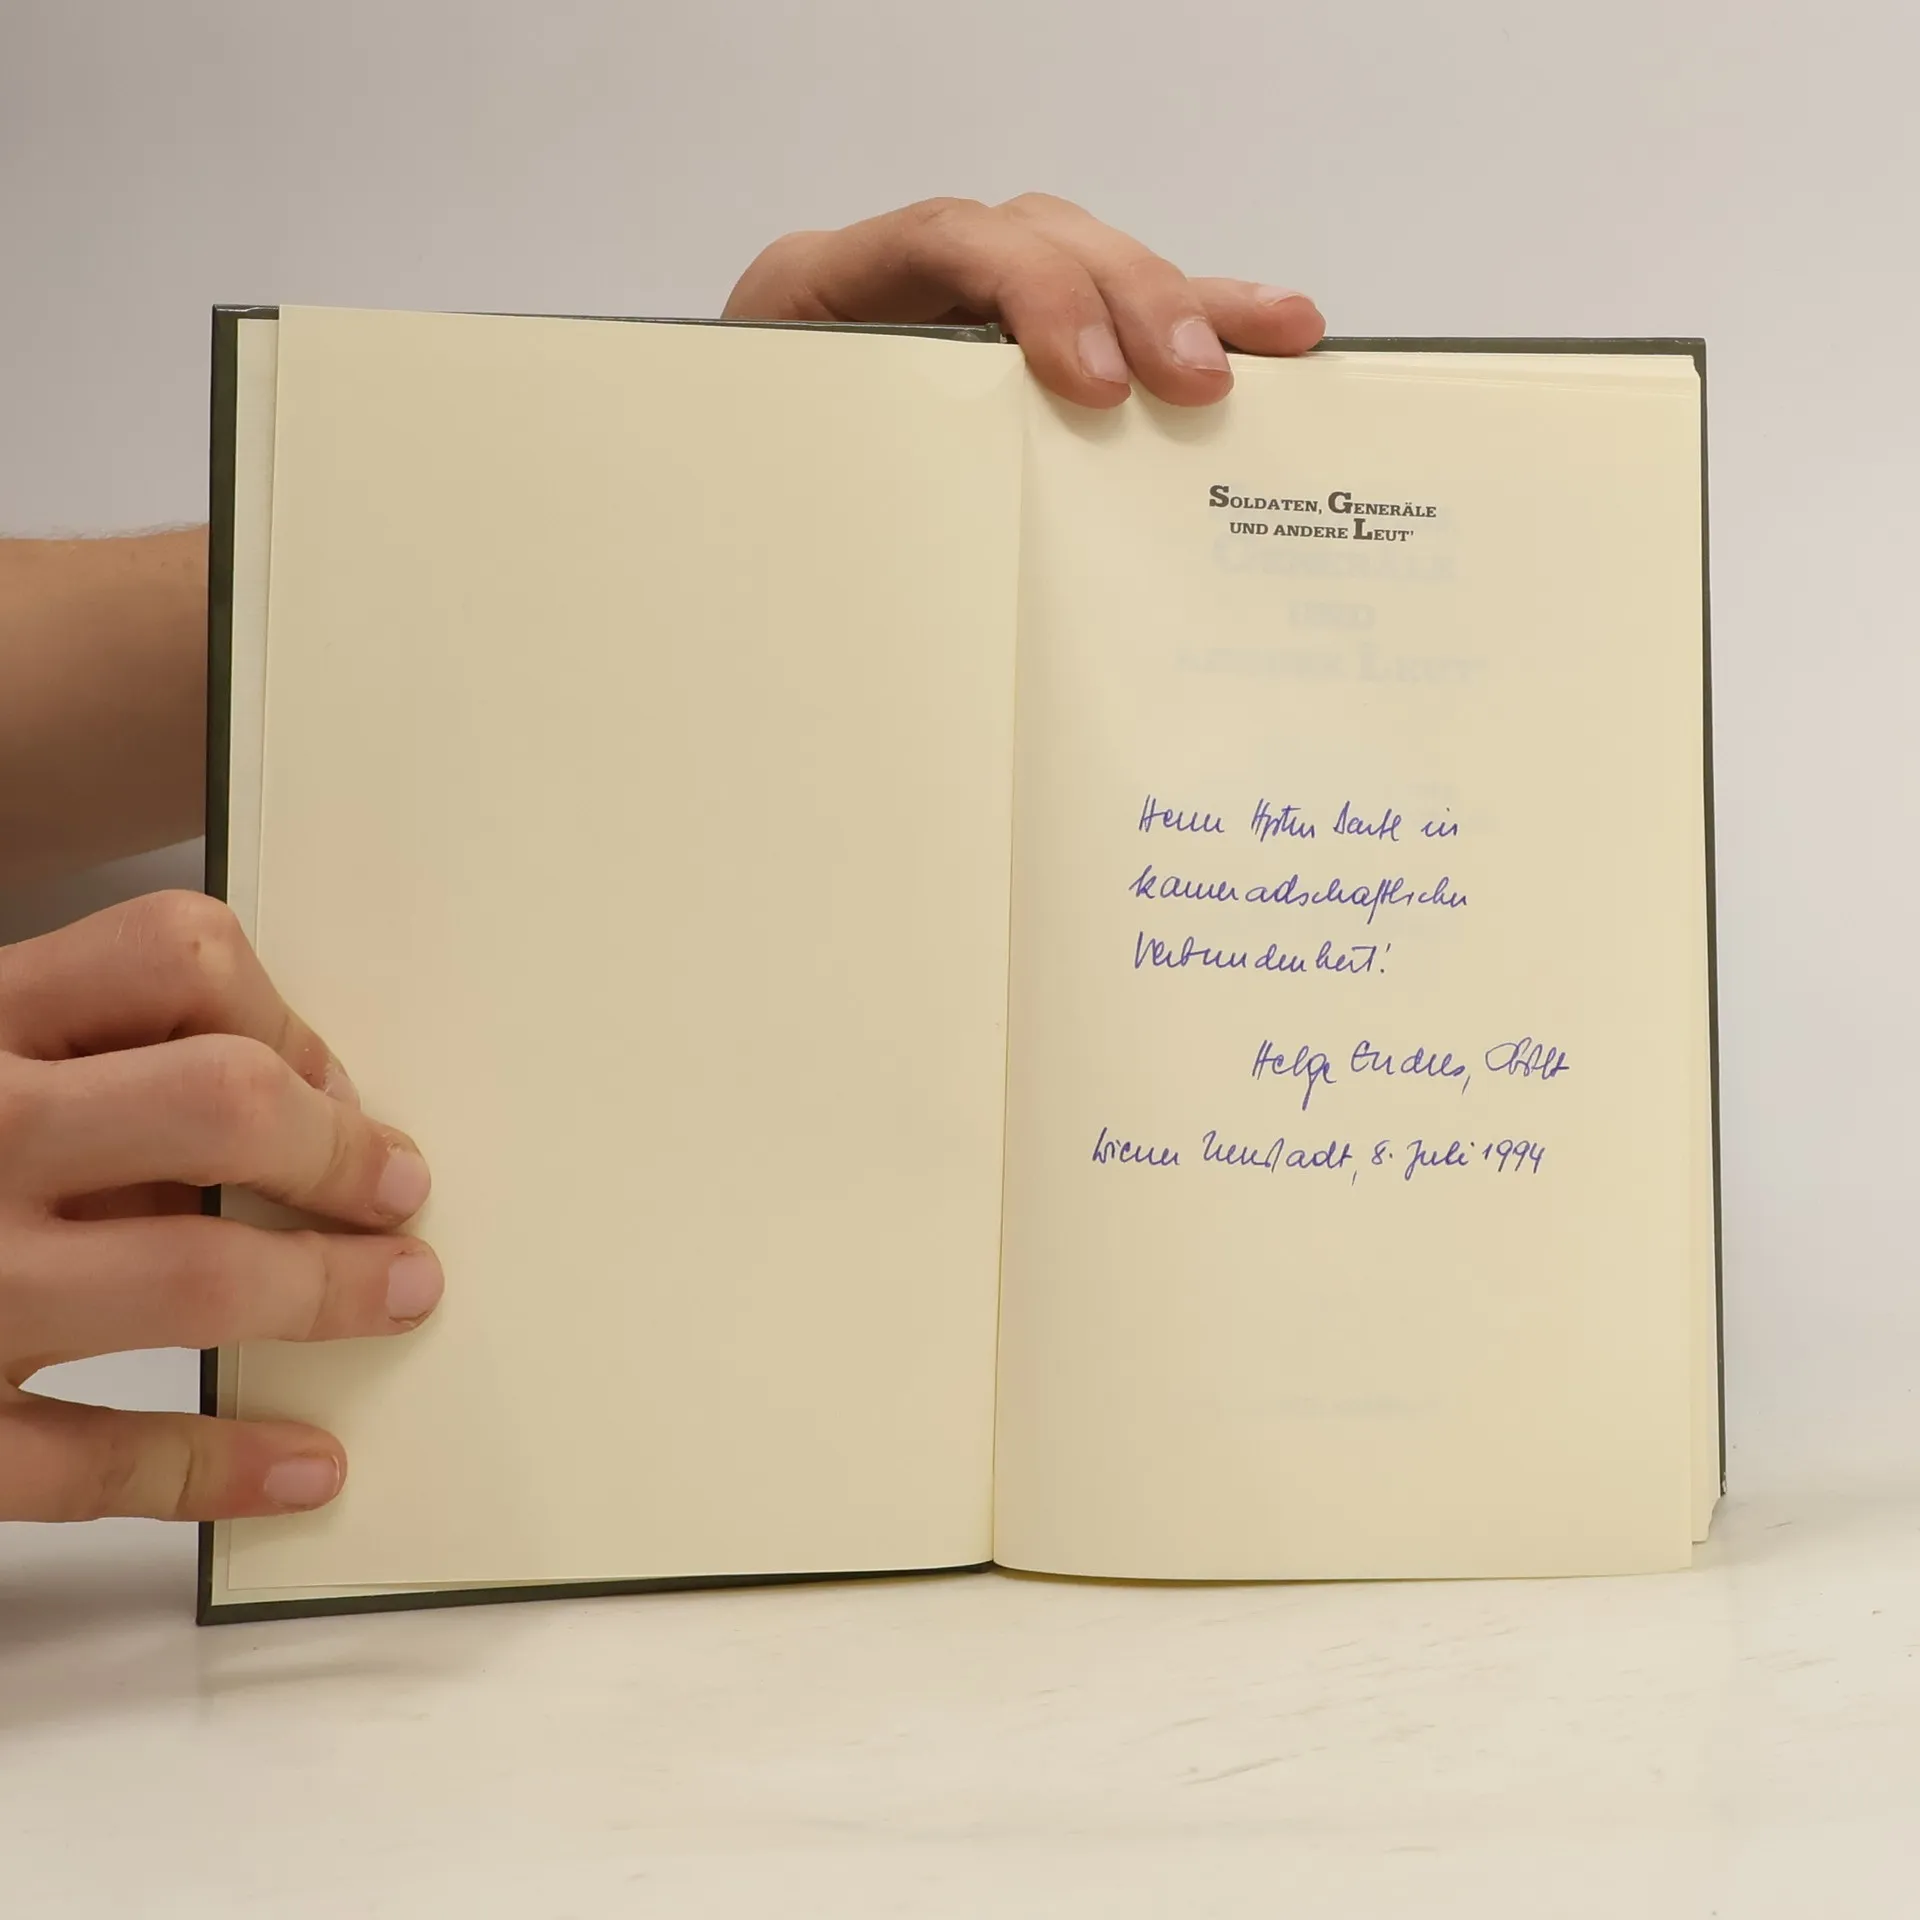 SOLDATEN, GENERÄLE
UND ANDERE LEUT'
Herrn Hptm in
kameradschaftlicher
Verbundenheit!
Helge Endres,
Wiener Neustadt, 8. Juli 1994